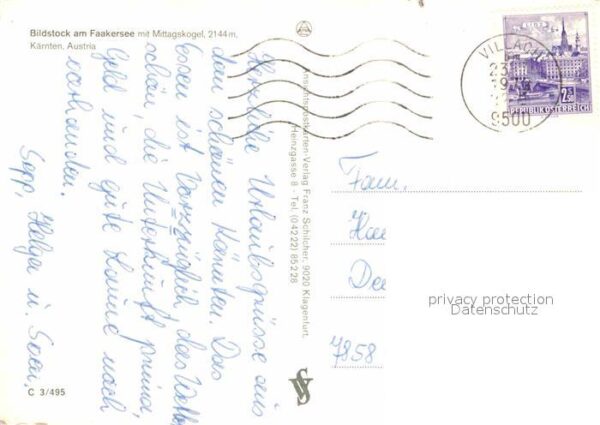 Bildstock am Faakersee mit Mittagskogel, 2144 m,
Kärnten, Austria
Herzliche Urlaubsgrüsse aus
den schönen Kärnten. Das
Essen ist Vorzüglich, das Wetter
schön, die Unterkunft prima,
Geld und gute Laune noch
vorhanden.
Sepp, Helga u. Sven.
C 3/495
Ansichtspostkarten-Verlag Franz Schilcher, 9020 Klagenfurt,
Heinzgasse 8 - Tel. (04222) 85228
LINZ
2.50
REPUBLIK ÖSTERREICH
VILLACH
9500
Fam.
7858
privacy protection
Datenschutz